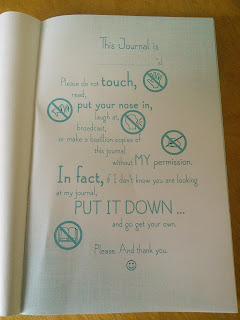 This Journal is
Please do not touch,
read,
put your nose in,
laugh at,
broadcast,
or make a bazillion copies of
this journal
without MY permission.
In fact, if I don't know you are looking
at my journal,
PUT IT DOWN ...
and go get your own.
Please. And thank you.